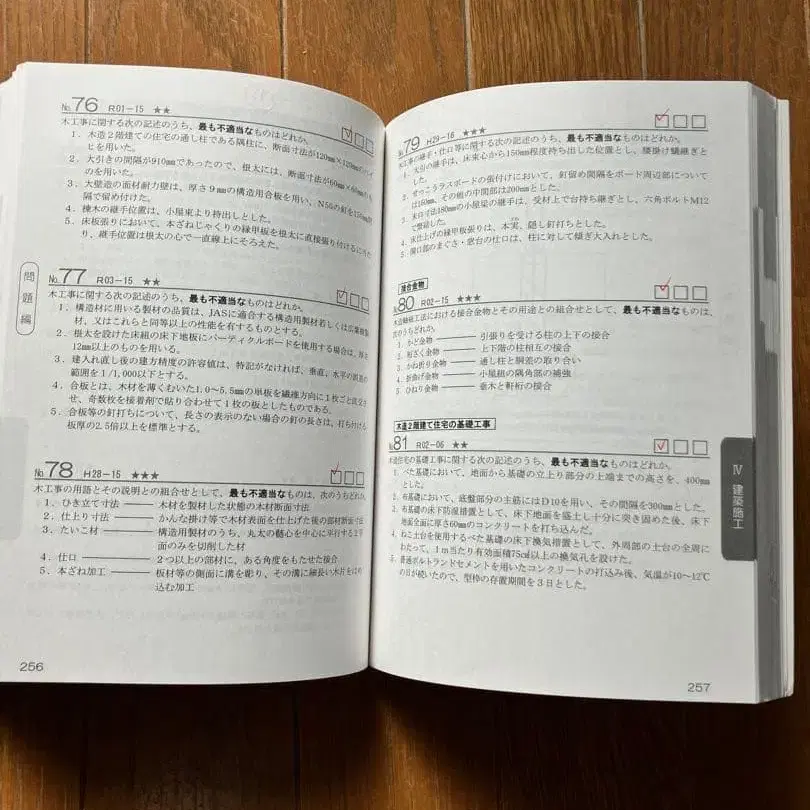 No.76 R01-15 ★★
木工事に関する次の記述のうち、最も不適当なものはどれか。
1. 木造2階建ての住宅の通し柱である隅柱に、断面寸法が120mm×120mmの
ヒを用いた。
2. 大引きの間隔が910mmであったので、根太には、断面寸法が60mm×60mmのも
のを用いた。
3. 大壁造の面材耐力壁は、厚さ9mmの構造用合板を用い、N50の釘を150mm間
隔で留め付けた。
4. 棟木の継手位置は、小屋束より持出しとした。
5. 床板張りにおいて、本ざねじゃくりの縁甲板を根太に直接張り付けるに当た
り、継手位置は根太の心で一直線上にそろえた。
No.77 R03-15 ★★
木工事に関する次の記述のうち、最も不適当なものはどれか。
1. 構造材に用いる製材の品質は、JASに適合する構造用製材若しくは広葉樹製
材、又はこれらと同等以上の性能を有するものとする。
2. 根太を設けた床組の床下地板にパーティクルボードを使用する場合は、厚さ
12mm以上のものを用いる。
3. 建入れ直し後の建方精度の許容値は、特記がなければ、垂直、水平の誤差の
範囲を1/1,000以下とする。
4. 合板とは、木材を薄くむいた1.0~5.5mmの単板を繊維方向に1枚ごと直交さ
せ、奇数枚を接着剤で貼り合わせて1枚の板としたものである。
5. 合板等の釘打ちについて、長さの表示のない場合の釘の長さは、打ち付ける
板厚の2.5倍以上を標準とする。
No.78 H28-15 ★★★
木工事の用語とその説明との組合せとして、最も不適当なものは、次のうちどれか
1. ひき立て寸法 ——— 木材を製材した状態の木材断面寸法
2. 仕上り寸法 ——— かんな掛け等で木材表面を仕上げた後の部材断面寸法
3. たいこ材 ——— 構造用製材のうち、丸太の髄心を中心に平行する2平
面のみを切削した材
4. 仕口 ——— 2つ以上の部材に、ある角度をもたせた接合
5. 本ざね加工 ——— 板材等の側面に溝を彫り、その溝に細長い木片をはめ
込む加工
問題編
256
No.79 H29-16 ★★★
木工事の継手・仕口等に関する次の記述のうち、最も不適当なものはどれか。
1. 大引の継手は、床束心から150mm程度持ち出した位置とし、腰掛け蟻継ぎと
した。
2. せっこうラスボードの張付けにおいて、釘留め間隔をボード周辺部について
は150mm、その他の中間部は200mmとした。
3. 末口寸法180mmの小屋梁の継手は、受材上で台持ち継ぎとし、六角ボルトM12
で緊結した。
4. 床仕上げの縁甲板張りは、本実、隠し釘打ちとした。
5. 開口部のまぐさ・窓台の仕口は、柱に対して傾ぎ大入れとした。
接合金物
No.80 R02-15 ★★★
木造軸組工法における接合金物とその用途との組合せとして、最も不適当なものは、
次のうちどれか。
1. かど金物 ——— 引張りを受ける柱の上下の接合
2. 短ざく金物 ——— 上下階の柱相互の接合
3. かね折り金物 ——— 通し柱と胴差の取り合い
4. 折曲げ金物 ——— 小屋組の隅角部の補強
5. ひねり金物 ——— 垂木と軒桁の接合
木造2階建て住宅の基礎工事
No.81 R02-06 ★★
木造住宅の基礎工事に関する次の記述のうち、最も不適当なものはどれか。
1. べた基礎において、地面から基礎の立上り部分の上端までの高さを、400mm
とした。
2. 布基礎において、底盤部分の主筋にはD10を用い、その間隔を300mmとした。
3. 布基礎の床下防湿措置として、床下地面を盛土し十分に突き固めた後、床下
地面全面に厚さ60mmのコンクリートを打ち込んだ。
4. ねこ土台を使用するべた基礎の床下換気措置として、外周部の土台の全周に
わたって、1m当たり有効面積75cm²以上の換気孔を設けた。
5. 普通ポルトランドセメントを用いたコンクリートの打込み後、気温が10~12℃
の日が続いたので、型枠の存置期間を3日とした。
Ⅳ 建築施工
257